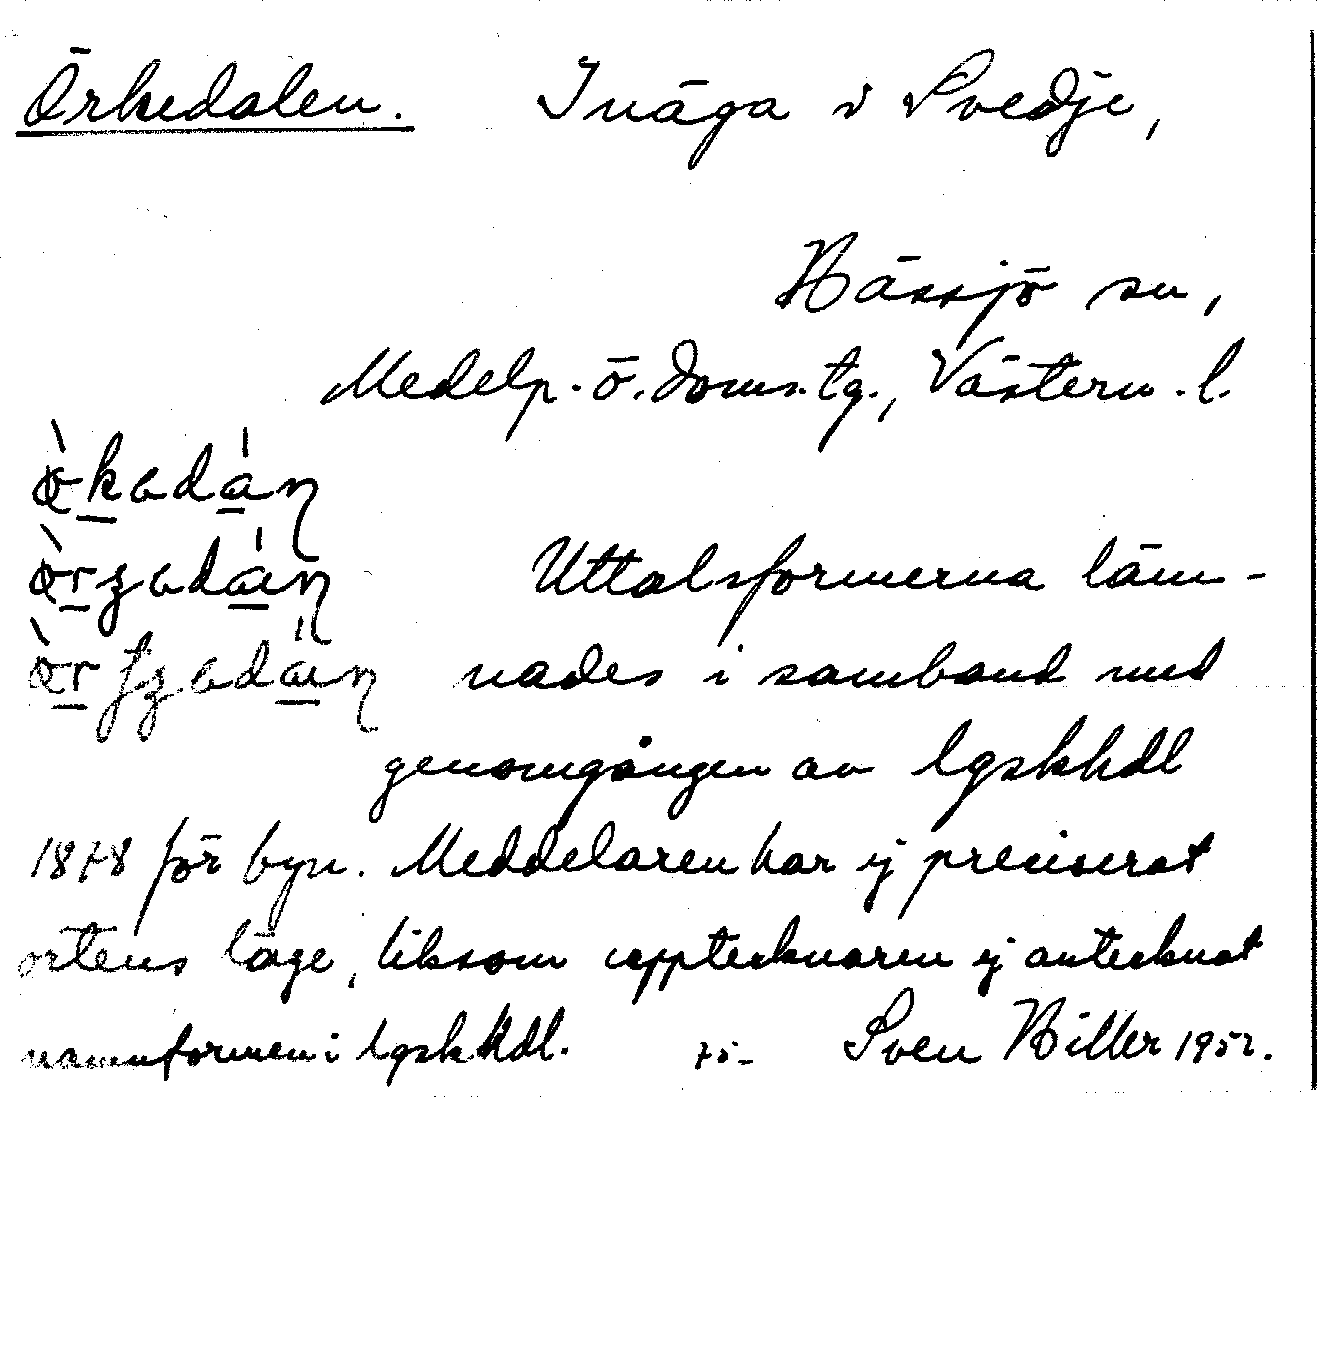 Örkedalen. Inäga i Svedje,
Hässjö sn,
Medelp. ö. doms. tg., Västern. l.
Uttalsformerna läm-
nades i samband med
genomgången av lgskhdl
1878 för byn. Meddelaren har ej preciserat
ortens läge, liksom upptecknaren ej antecknat
namnformen i lgskhdl. Sven Hiller 1952.